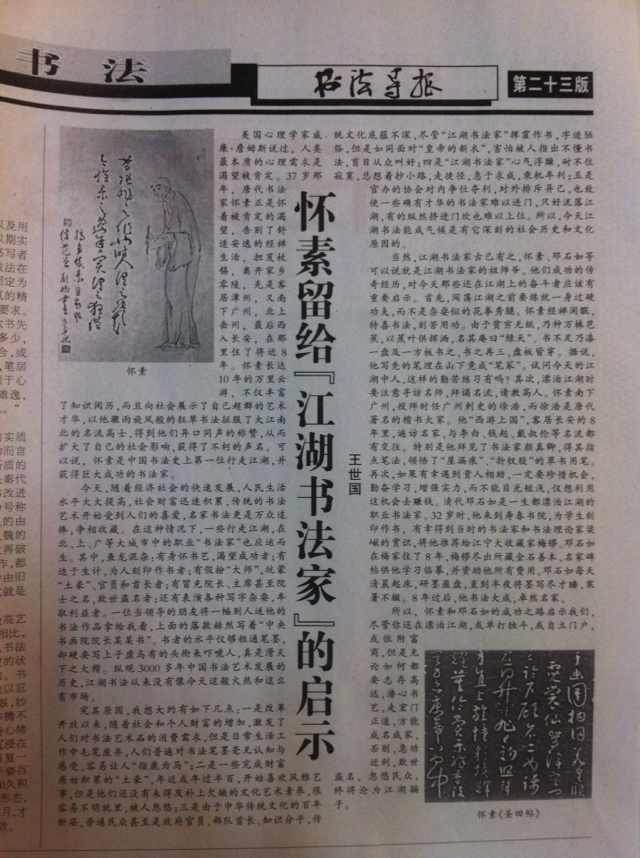 书法
书法导报
第二十三版
怀素留给『江湖书法家』的启示
王世国
怀素
美国心理学家威
廉·詹姆斯说过，人类
最本质的心理需求是
渴望被肯定。37岁那
年，唐代书法
家怀素正是怀
着被肯定的渴
望，告别了舒
适安逸的经禅
生活，担笈杖
锡，离开家乡
零陵，先是客
居潭州，又南
下广州，北上
衡州，最后西
入长安，在那
里住了将近8
年。怀素长达
10年的万里云
游，不仅丰富
了知识阅历，而且向社会展示了自己超群的艺术
才华，以他骤雨旋风般的狂草书法征服了大江南
北的名流高士，得到他们异口同声的称赞，从而
扩大了自己的社会影响，获得了不朽的声名。可
以说，怀素是中国书法史上第一位行走江湖，并
获得巨大成功的书法家。
今天，随着经济社会的快速发展，人民生活
水平大大提高，社会财富迅速积累，传统的书法
艺术开始受到人们的喜爱，名家书法更是万众追
捧，争相收藏。在这种情况下，一些行走江湖，在
北、上、广等大城市中的职业“书法家”也应运而
生。其中，鱼龙混杂：有身怀书艺，渴望成功者；有
迫于生计，为人刻印作书者；有假扮“大师”，欺蒙
“土豪”、官员和首长者；有冒充院长、主席甚至院
士之名，欺世盗名者；还有表演各种写字杂耍，牟
取利益者。一位当领导的朋友将一幅别人送他的
书法作品拿给我看，上面的落款赫然写着“中央
书画院院长某某书”。书者的水平仅够粗通笔墨，
却硬要写上子虚乌有的头衔来吓唬人，真是滑天
下之大稽。纵观3000多年中国书法艺术发展的
历史，江湖书法从来没有像今天这般火热和这么
有市场。
究其原因，我想大约有如下几点：一是改革
开放以来，随着社会和个人财富的增加，激发了
人们对书法艺术品的消费需求，但是日常生活工
作中无笔应手，人们普遍对书法笔墨要义认知与
感受，容易让人“指鹿为马”；二是一些完成财富
原始积累的“土豪”，年近或年过半百，开始喜欢风雅艺
事，但是他们还没有来得及补上欠缺的文化艺术素养，很
容易不明就里，被人忽悠；三是由于中华传统文化的百年
断裂，普通民众甚至是政府官员、部队首长、知识分子，传
统文化底蕴不深，尽管“江湖书法家”挥毫作书，字迹恶
俗，但是如同面对“皇帝的新衣”，害怕被人指出不懂书
法，盲目从众叫好；四是“江湖书法家”心气浮躁，耐不住
寂寞，总想着抄小路，走捷径，急于求成，乘机牟利；五是
官办的协会对内争任夺利，对外排斥异己，也致
使一些确有才华的书法家难以进门，只好流落江
湖，有的纵然挤进门坎也难以上位。所以，今天江
湖书法能成气候是有它深刻的社会历史和文化
原因的。
当然，江湖书法家古已有之，怀素、邓石如等
可以说就是江湖书法家的祖师爷。他们成功的传
奇经历，对今天那些还在江湖上的奋斗者应该有
重要启示。首先，闯荡江湖之前要练就一身过硬
功夫，而不是杂耍似的花拳秀腿。怀素经禅闲暇，
特喜书法，刻苦用功。由于贫穷无纸，乃种万株芭
蕉，以蕉叶供挥洒，名其庵曰“绿天”。书不足乃漆
一盘及一方板书之，书之再三，盘板皆穿。据说，
他写秃的笔埋在山下竟成“笔冢”。试问今天的江
湖中人，这样的勤苦练习有吗？其次，漂泊江湖时
要注意寻访名师，拜谒名流，请教高人。怀素南下
广州，投师时任广州刺史的徐浩，而徐浩是唐代
著名的楷书大家。他“西游上国”，客居长安的8
年里，遍访名家，与李白、钱起、戴叔伦等名流都
有交往。特别是他拜见了书法家颜真卿，得其指
点笔法，领悟了“屋漏痕”、“折钗股”的草书用笔。
再次，如果有幸遇到贵人相助，一定要珍惜机会，
勤奋学习，增强实力，而不能目光短浅，仅想利用
这机会去赚钱。清代邓石如是一生都漂泊江湖的
职业书法家。32岁时，他来到寿春书院，为学生刻
印作书，有幸得到当时的书法家和书法理论家梁
巘的赏识，将他推荐给江宁大收藏家梅镠。邓石如
在梅家住了8年，梅镠尽出所藏金石善本、名家碑
帖供他学习临摹，并资助他所有费用。邓石如每天
清晨起床，研墨盈盘，直到半夜将墨写尽才睡，寒
暑不辍，8年过后，他书法大成，卓然名家。
所以，怀素和邓石如的成功之路启示我们，
尽管你还在漂泊江湖，或单打独斗，或自立门户，
或依附富
商，但是无
论如何都
要志存高
远，潜心书
艺，走宏门
正道，方能
成名成家，
否则，急功
近利，欺世
盗名，忽悠民众，
终将沦为江湖骗
子。
怀素《圣母帖》